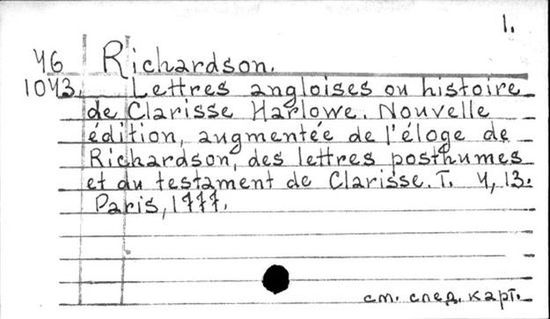 1.
46 Richardson.
1043. Lettres angloises ou histoire
de Clarisse Harlowe. Nouvelle
édition, augmentée de l'éloge de
Richardson, des lettres posthumes
et du testament de Clarisse. T. 4, 13.
Paris, 1777.
см. след. карт.